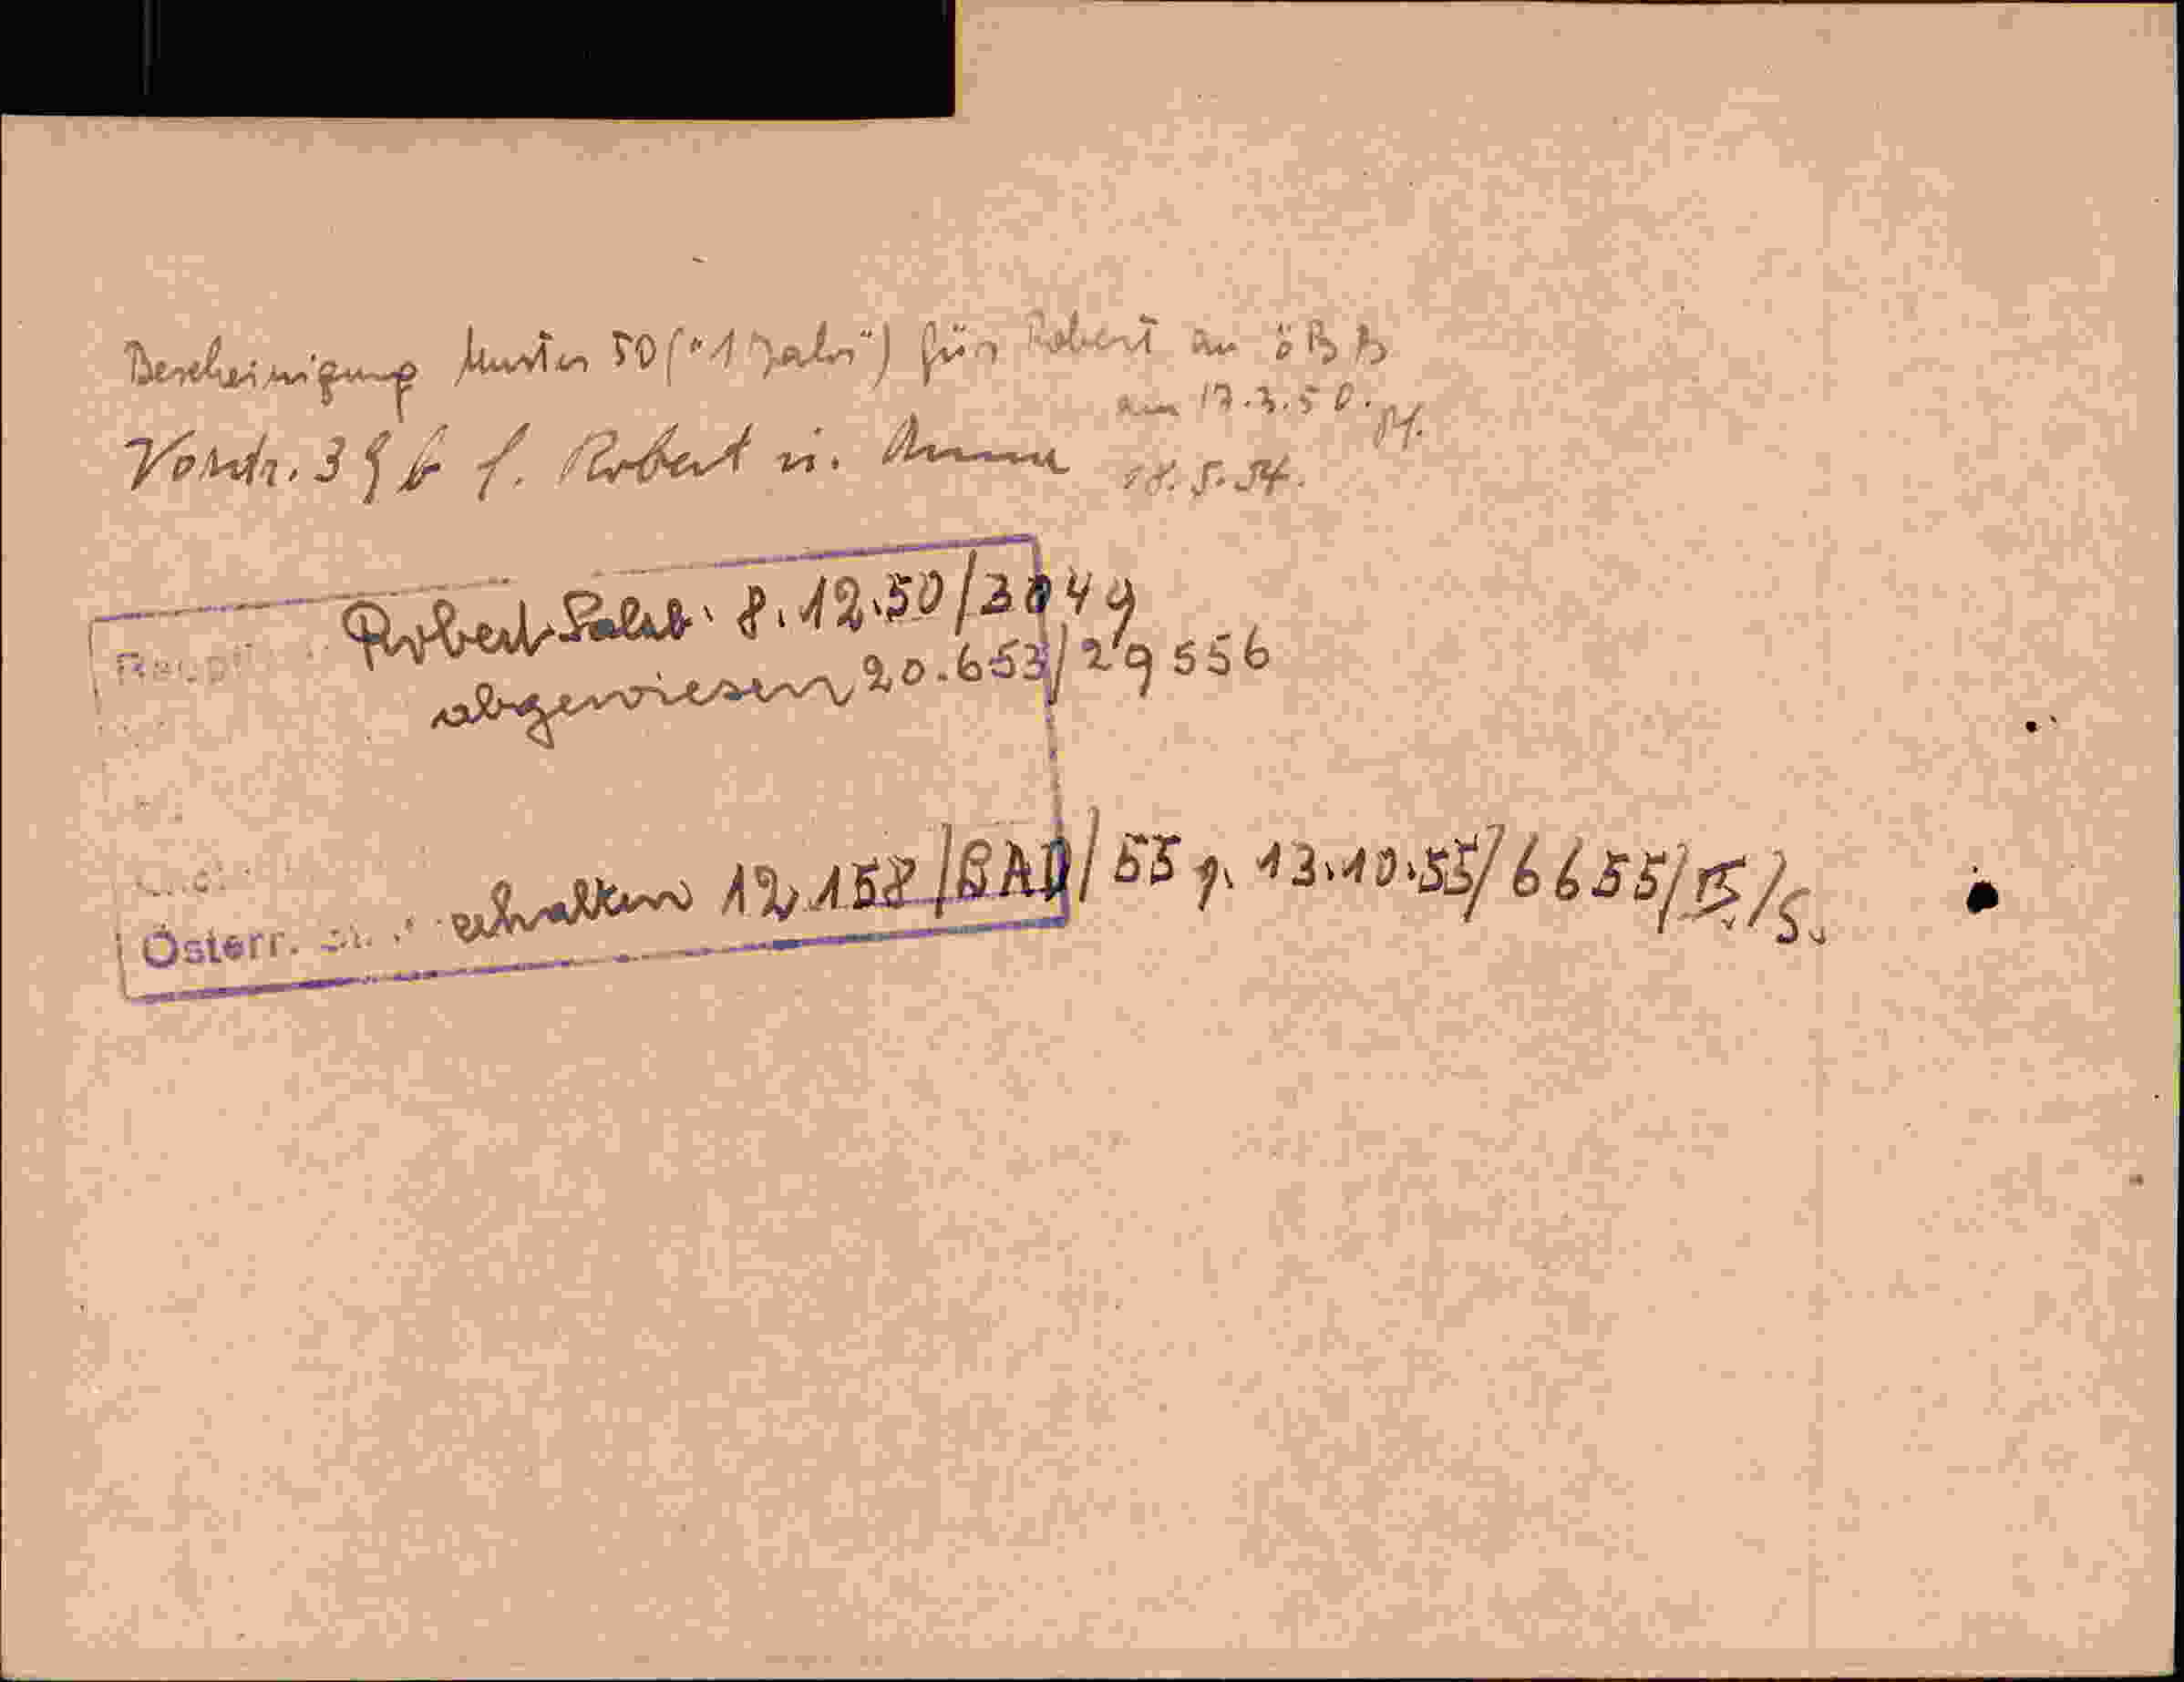 Bescheinigung Muster 50 ("1 Jahr") für Robert an ÖBB
am 17.3.50.
Vordr. 39 b f. Robert u. Anna 18.5.54.
Robert 8.12.50/3049
abgewiesen 20.653/29556
erhalten 12.158/BAD/55 13.10.55/6655/
Österr.